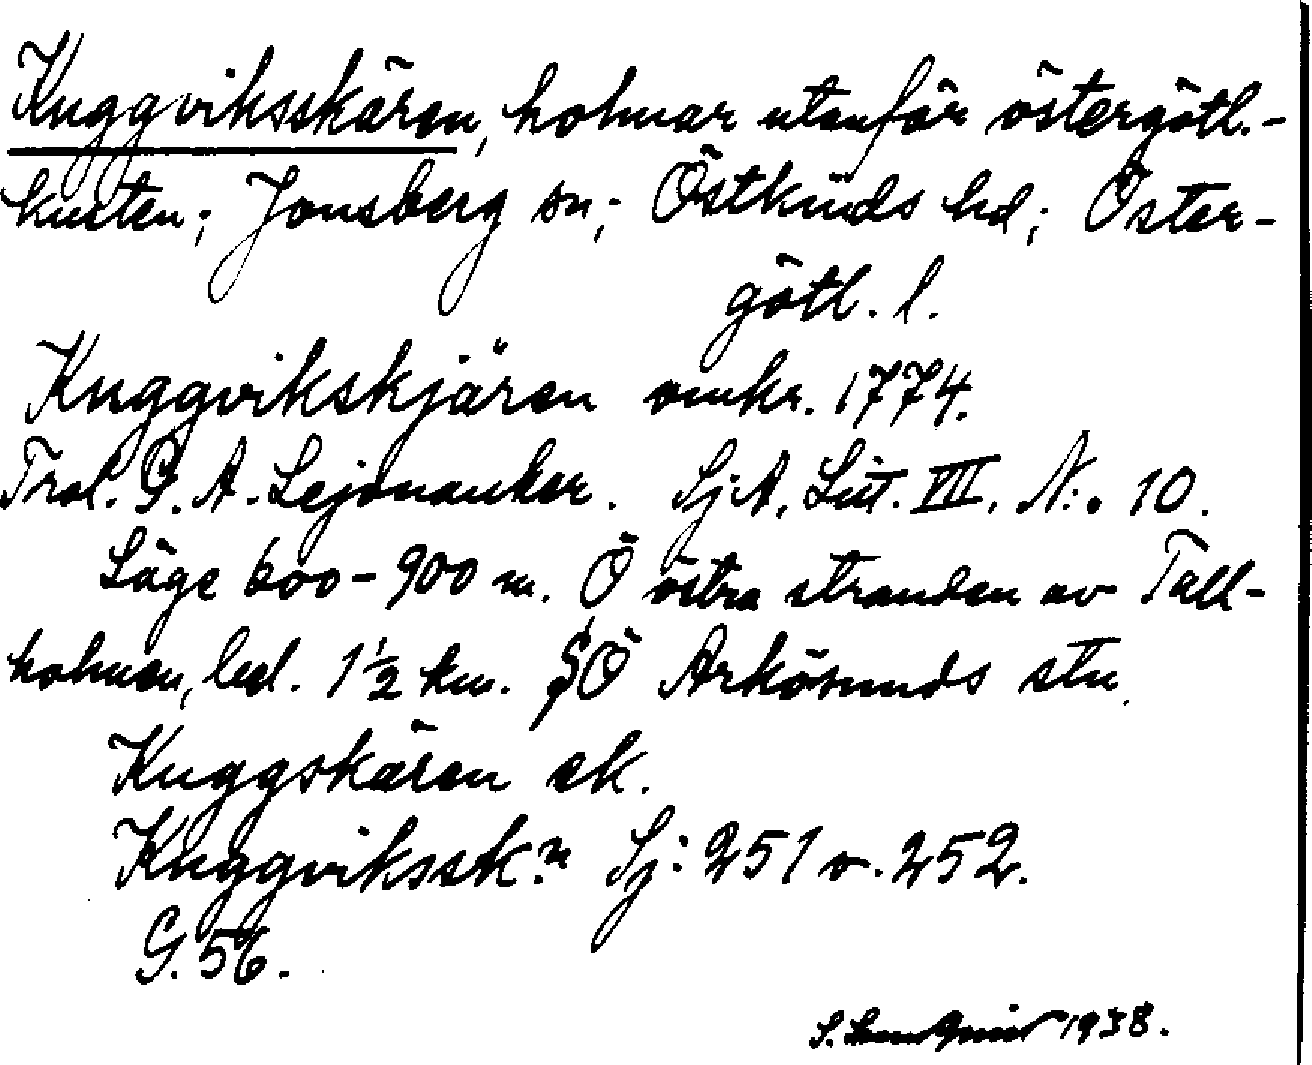 Kuggviksskären, holmar utanför östergötl.-
kusten; Jonsberg sn; Östkinds hd; Öster-
götl. l.
Kuggvikskjären omkr. 1774.
Trol. G. A. Lejonanker. Sj:A. Litt. VIII. N:o 10.
Läge 600-900 m. Ö östra stranden av Tall-
holmen, bel. 1½ km. SÖ Arkösunds stn.
Kuggskären ek.
Kuggvikssk:n Sj: 251 o. 252.
G. 56.
S. 1938.